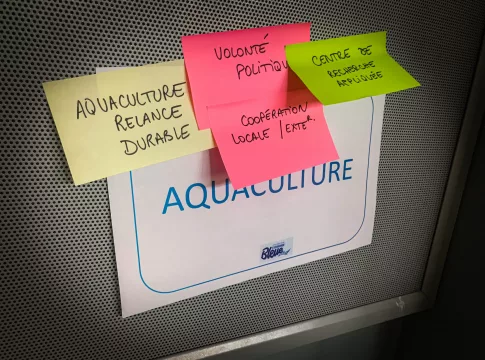 AQUACULTURE
RELANCE
DURABLE
VOLONTÉ
POLITIQU
COOPÉRATION
LOCALE / EXTER.
CENTRE DE
RECHERCHE
APPLIQUÉE
AQUACULTURE
Bleue